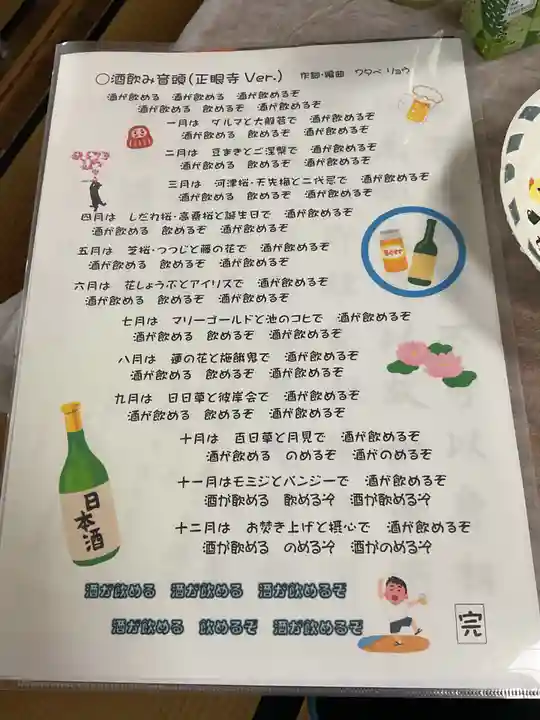 ○酒飲み音頭(正眼寺Ver.) 作詞・編曲 ワタベ リョウ
酒が飲める 酒が飲める 酒が飲めるぞ
酒が飲める 飲めるぞ 酒が飲めるぞ
一月は ダルマと大般若で 酒が飲めるぞ
酒が飲める 飲めるぞ 酒が飲めるぞ
二月は 豆まきとご涅槃で 酒が飲めるぞ
酒が飲める 飲めるぞ 酒が飲めるぞ
三月は 河津桜・天先梅と二代忌で 酒が飲めるぞ
酒が飲める 飲めるぞ 酒が飲めるぞ
四月は しだれ桜・高桑桜と誕生日で 酒が飲めるぞ
酒が飲める 飲めるぞ 酒が飲めるぞ
五月は 芝桜・つつじと藤の花で 酒が飲めるぞ
酒が飲める 飲めるぞ 酒が飲めるぞ
Beer
六月は 花しょうぶとアイリスで 酒が飲めるぞ
酒が飲める 飲めるぞ 酒が飲めるぞ
七月は マリーゴールドと池のコヒで 酒が飲めるぞ
酒が飲める 飲めるぞ 酒が飲めるぞ
八月は 蓮の花と施餓鬼で 酒が飲めるぞ
酒が飲める 飲めるぞ 酒が飲めるぞ
九月は 日日草と彼岸会で 酒が飲めるぞ
酒が飲める 飲めるぞ 酒が飲めるぞ
十月は 百日草と月見で 酒が飲めるぞ
酒が飲める のめるぞ 酒がのめるぞ
十一月はモミジとパンジーで 酒が飲めるぞ
酒が飲める 飲めるぞ 酒が飲めるぞ
十二月は お焚き上げと摂心で 酒が飲めるぞ
酒が飲める のめるぞ 酒がのめるぞ
日本酒
酒が飲める 酒が飲める 酒が飲めるぞ
酒が飲める 飲めるぞ 酒が飲めるぞ
完